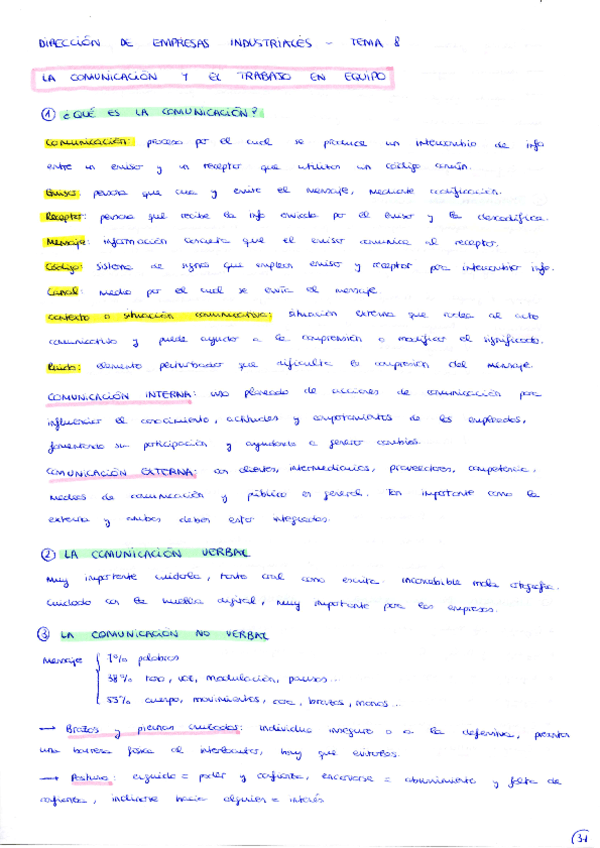 DIRECCIÓN DE EMPRESAS INDUSTRIALES - TEMA 8
LA COMUNICACIÓN Y EL TRABAJO EN EQUIPO
① ¿QUÉ ES LA COMUNICACIÓN?
Comunicación: proceso por el cual se produce un intercambio de info
entre un emisor y un receptor que utilizan un código común.
Emisor: persona que crea y emite el mensaje, mediante codificación.
Receptor: persona que recibe la info enviada por el emisor y la descodifica.
Mensaje: información concreta que el emisor comunica al receptor.
Código: sistema de signos que emplean emisor y receptor para intercambiar info.
Canal: medio por el cual se envía el mensaje.
Contexto o situación comunicativa: situación externa que rodea al acto
comunicativo y puede ayudar a la comprensión o modificar el significado.
Ruido: elemento perturbador que dificulta la compresión del mensaje.
COMUNICACIÓN INTERNA: uso planeado de acciones de comunicación para
influenciar el conocimiento, actitudes y comportamientos de los empleados,
fomentando su participación y ayudando a generar cambios.
COMUNICACIÓN EXTERNA: con clientes, intermediarios, proveedores, competencia,
medios de comunicación y público en general. Tan importante como la
externa y ambas deben estar integradas.
② LA COMUNICACIÓN VERBAL
Muy importante cuidarla, tanto oral como escrita. Inconcebible mala ortografía.
Cuidado con la huella digital, muy importante para las empresas.
③ LA COMUNICACIÓN NO VERBAL
Mensaje { 7% palabras
38% tono, voz, modulación, pausas...
55% cuerpo, movimientos, cara, brazos, manos...
→ Brazos y piernas cruzados: individuo inseguro o a la defensiva, presenta
una barrera física al interlocutor, hay que evitarlos.
→ Postura: erguido = poder y confianza, encorvarse = aburrimiento y falta de
confianza, inclinarse hacia alguien = interés
31